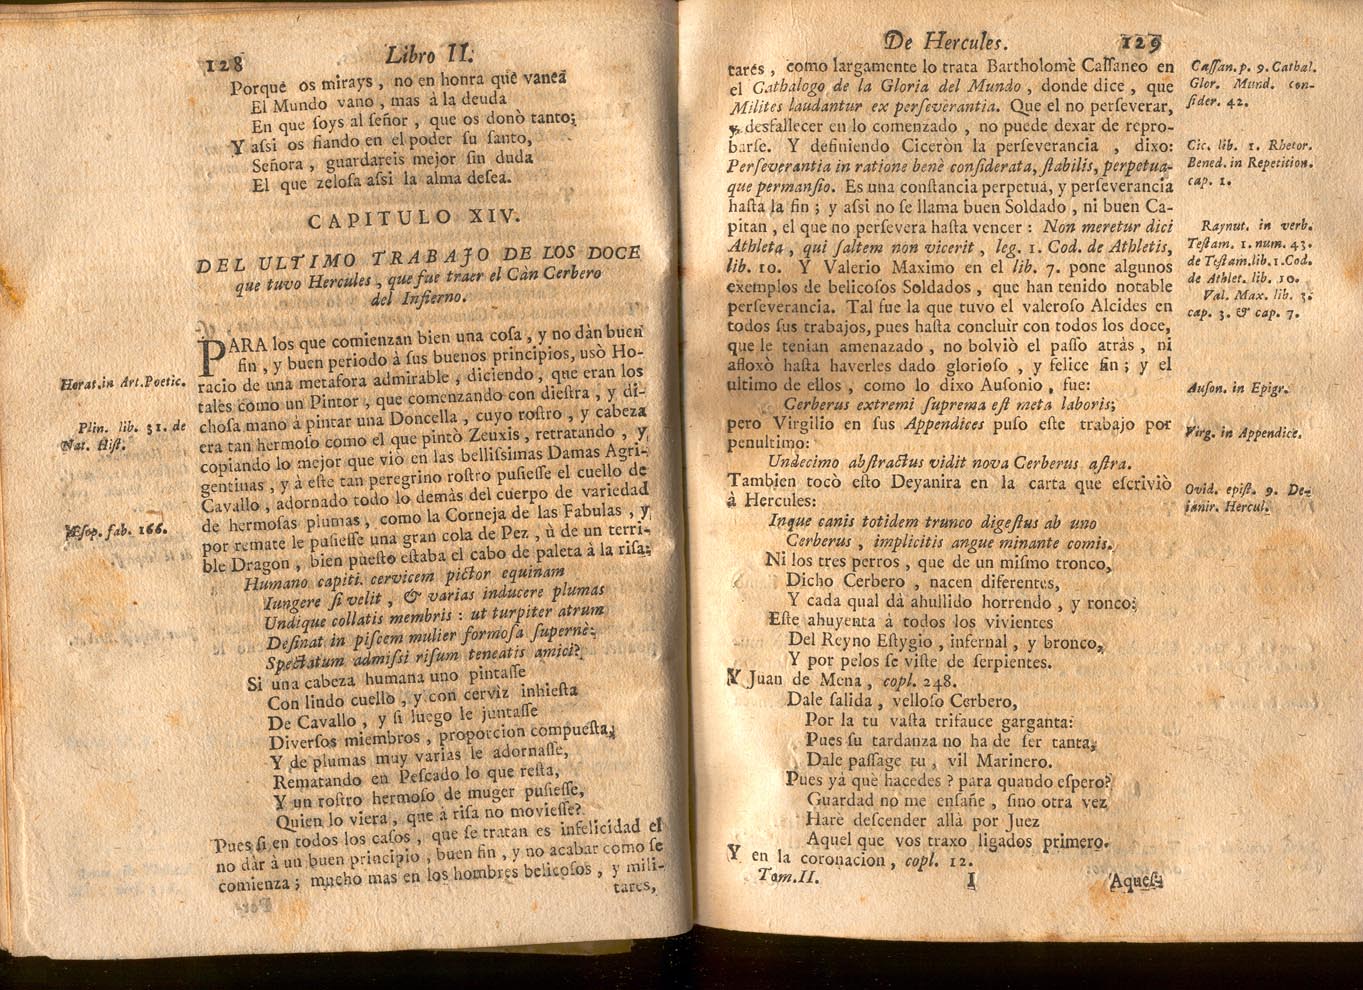 128 Libro II.
Porque os mirays, no en honra que vanea
El Mundo vano, mas à la deuda
En que soys al señor, que os donò tanto;
Y assi os fiando en el poder su santo,
Señora, guardareis mejor sin duda
El que zelosa assi la alma desea.
CAPITULO XIV.
DEL ULTIMO TRABAJO DE LOS DOCE
que tuvo Hercules, que fue traer el Càn Cerbero
del Infierno.
PARA los que comienzan bien una cosa, y no dàn buen
fin, y buen periodo à sus buenos principios, usò Ho-
racio de una metafora admirable, diciendo, que eran los
tales como un Pintor, que comenzando con diestra, y di-
chosa mano à pintar una Doncella, cuyo rostro, y cabeza
era tan hermoso como el que pintò Zeuxis, retratando, y
copiando lo mejor que viò en las bellissimas Damas Agri-
gentinas, y à este tan peregrino rostro pusiesse el cuello de
Cavallo, adornado todo lo demàs del cuerpo de variedad
de hermosas plumas, como la Corneja de las Fabulas, y
por remate le pusiesse una gran cola de Pez, ù de un terri-
ble Dragon, bien puesto estaba el cabo de paleta à la risa;
Humano capiti cervicem pictor equinam
Iungere si velit, & varias inducere plumas
Undique collatis membris: ut turpiter atrum
Desinat in piscem mulier formosa supernè;
Spectatum admissi risum teneatis amici?
Si una cabeza humana uno pintasse
Con lindo cuello, y con cerviz inhiesta
De Cavallo, y si luego le juntasse
Diversos miembros, proporcion compuesta;
Y de plumas muy varias le adornasse,
Rematando en Pescado lo que resta,
Y un rostro hermoso de muger pusiesse,
Quien lo viera, que à risa no moviesse?
Pues si en todos los casos, que se tratan es infelicidad el
no dàr à un buen principio, buen fin, y no acabar como se
comienza; mucho mas en los hombres belicosos, y mili-
tares,
Horat. in Art. Poetic.
Plin. lib. 31. de
Nat. Hist.
Æsop. fab. 166.
De Hercules. 129
tares, como largamente lo trata Bartholomè Cassaneo en
el Cathalogo de la Gloria del Mundo, donde dice, que
Milites laudantur ex perseverantia. Que el no perseverar,
y desfallecer en lo comenzado, no puede dexar de repro-
barse. Y definiendo Ciceròn la perseverancia, dixo:
Perseverantia in ratione benè considerata, stabilis, perpetua-
que permansio. Es una constancia perpetua, y perseverancia
hasta la fin; y assi no se llama buen Soldado, ni buen Ca-
pitan, el que no persevera hasta vencer: Non meretur dici
Athleta, qui saltem non vicerit, leg. 1. Cod. de Athletis,
lib. 10. Y Valerio Maximo en el lib. 7. pone algunos
exemplos de belicosos Soldados, que han tenido notable
perseverancia. Tal fue la que tuvo el valeroso Alcides en
todos sus trabajos, pues hasta concluìr con todos los doce,
que le tenian amenazado, no bolviò el passo atràs, ni
afloxò hasta haverles dado glorioso, y felice fin; y el
ultimo de ellos, como lo dixo Ausonio, fue:
Cerberus extremi suprema est meta laboris;
pero Virgilio en sus Appendices puso este trabajo por
penultimo:
Undecimo abstractus vidit nova Cerberus astra.
Tambien tocò esto Deyanira en la carta que escriviò
à Hercules:
Inque canis totidem trunco digestus ab uno
Cerberus, implicitis angue minante comis.
Ni los tres perros, que de un mismo tronco,
Dicho Cerbero, nacen diferentes,
Y cada qual dà ahullido horrendo, y ronco;
Este ahuyenta à todos los vivientes
Del Reyno Estygio, infernal, y bronco,
Y por pelos se viste de serpientes.
Y Juan de Mena, copl. 248.
Dale salida, velloso Cerbero,
Por la tu vasta trisauce garganta:
Pues su tardanza no ha de ser tanta;
Dale passage tu, vil Marinero.
Pues yà què hacedes? para quando espero?
Guardad no me ensañe, sino otra vez
Harè descender allà por Juez
Aquel que vos traxo ligados primero.
Y en la coronacion, copl. 12.
Tom. II. I Aques-
Cassan. p. 9. Cathal.
Glor. Mund. con-
sider. 42.
Cic. lib. 1. Rhetor.
Bened. in Repetition.
cap. 1.
Raynut. in verb.
Testam. 1. num. 43.
de Testam. lib. 1. Cod.
de Athlet. lib. 10.
Val. Max. lib. 3.
cap. 3. & cap. 7.
Auson. in Epigr.
Virg. in Appendice.
Ovid. epist. 9. De-
ianir. Hercul.